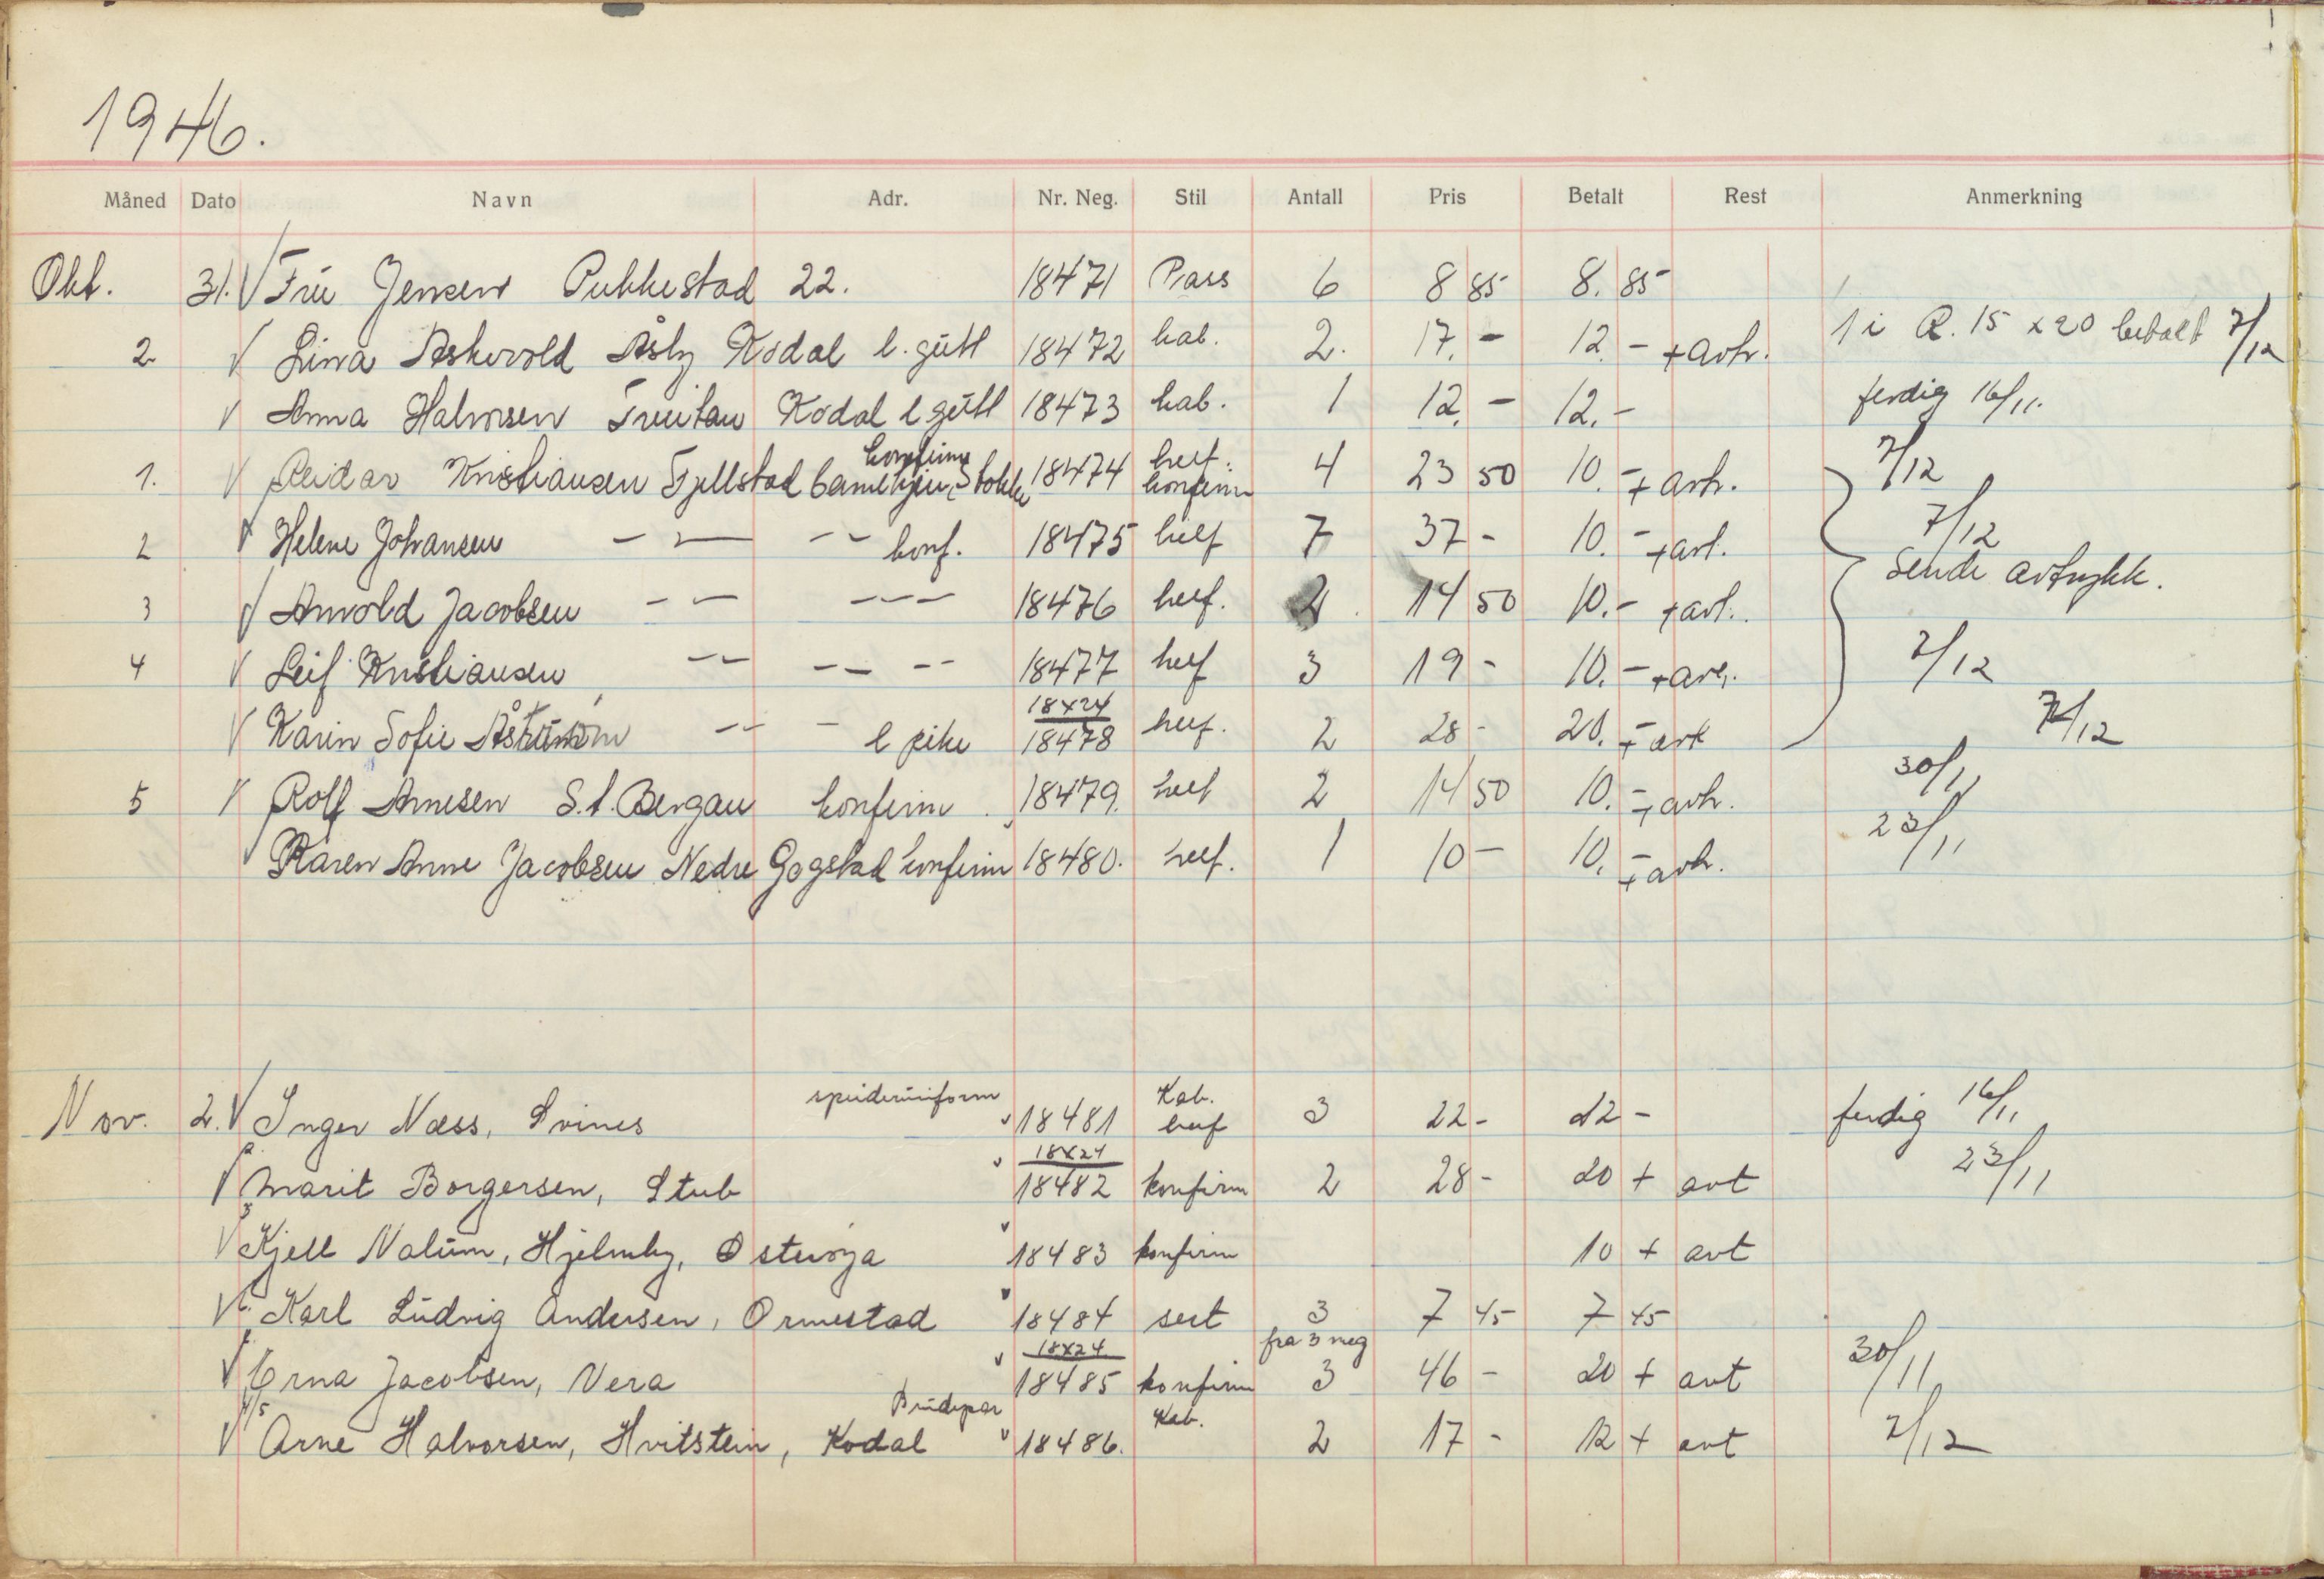 1946.
Måned Dato Navn Adr. Nr. Neg. Stil Antall Pris Betalt Rest Anmerkning
Okt. 31. V Frü Jensen Pukkestad 22. 18471 Pass 6 8 85 8. 85
2. V Lina Askerold Åsly Kodal l. gütt 18472 kab. 2. 17. - 12. - + avtr. 1 i R. 15 x 20 betalt 7/12
V Anna Halvorsen Kodal l. gütt 18473 kab. 1 12. - 12. - ferdig 16/11.
konfirm helf.
1. V Reidar Kristiansen Fjellstad Stokke 18474 konfirm 4 23 50 10. - + avtr. 7/12
2 V Helene Johansen - - - - konf. 18475 helf 7 37 - 10. - + avt. 7/12
Sende avtrykk.
3 V Arnold Jacobsen - - - - - 18476 helf. 2 14 50 10. - + avt.
4 V Leif Kristiansen - - - - - - 18477 helf 3 19 - 10. - + avt. 7/12
18x24
V Karin Sofie - - - l pike 18478 helf. 2 28 - 20. - + avt 7/12
5 V Rolf Arnesen S. t. Bergan konfirm. 18479. helf 2 14 50 10. - + avtr. 30/11
V Karen Anne Jacobsen Nedre Gogstad konfirm 18480. helf. 1 10 - 10. - + avtr. 23/11
speiderüniform Kab.
Nov. 2. V Inger Næss, Svines 18481 helf 3 22 - 22 - ferdig 16/11
18x24
V Marit Borgersen, Stub 18482 konfirm 2 28 - 20 + avt 23/11
V Kjell Nalüm, Hjelmby, Østerøya 18483 konfirm 10 + avt
V Karl Lüdvig Andersen, Ormestad 18484 sert 3 7 45 7 45
18x24 fra 3 neg
V Erna Jacobsen, Vera 18485 konfirm 3 46 - 20 + avt 30/11
Brüdepar Kab.
V Arne Halvorsen, Hvitstein, Kodal 18486. 2 17 - 12 + avt 7/12